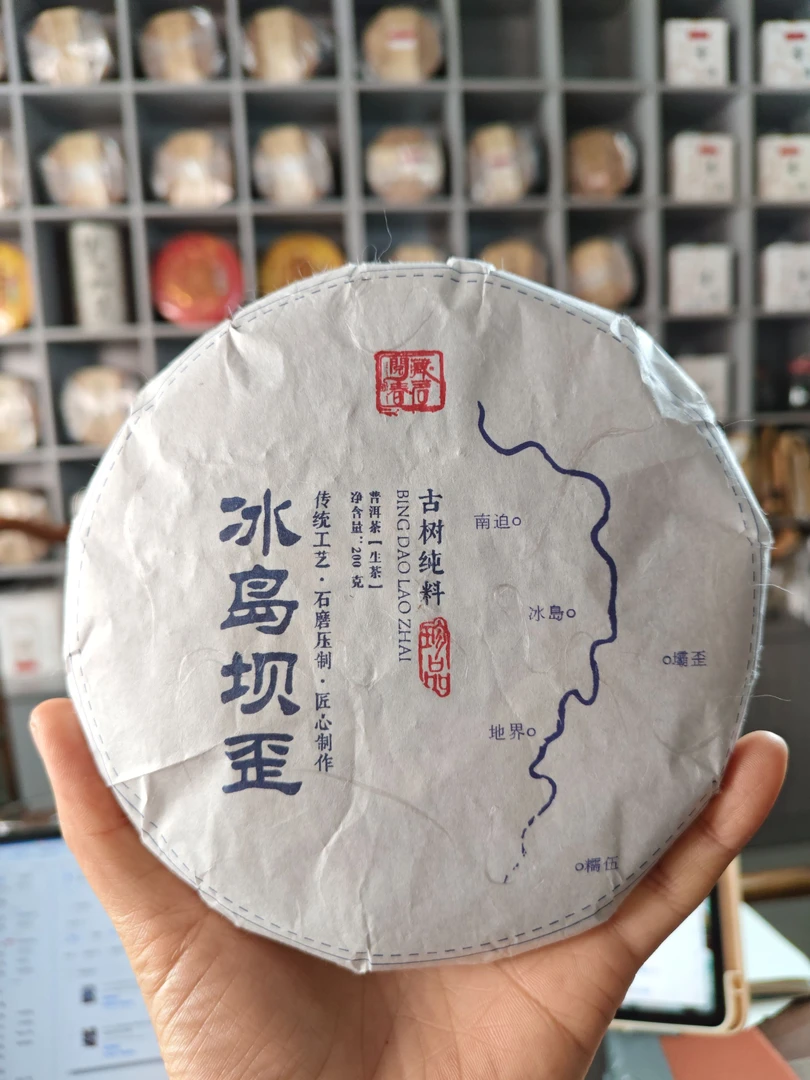 冰岛坝歪
传统工艺·石磨压制·匠心制作
净含量：200 克
普洱茶【生茶】
BING DAO LAO ZHAI
古树纯料
珍品
南迫
冰島
壩歪
地界
糯伍